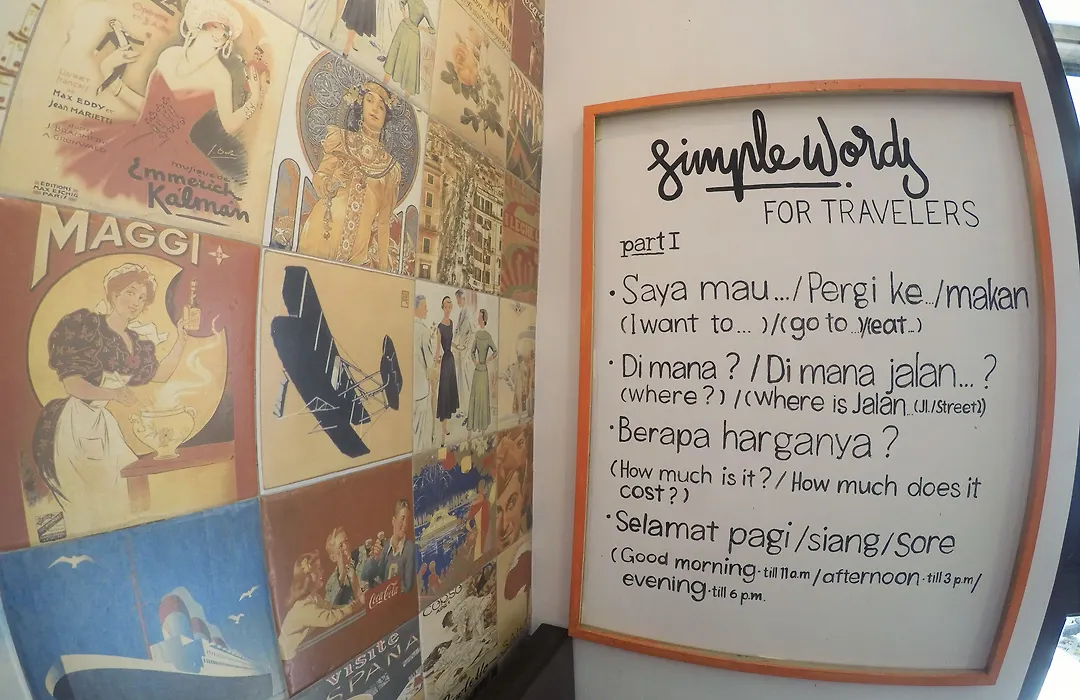 Max EDDY et
Jean MARIETTI
musique de
Emmerich
Kálmán
EDITIONS
MAX ESCHIG
PARIS
MAGGI
Coca-Cola
VISITE
ESPANA
simple words
FOR TRAVELERS
part I
• Saya mau.../Pergi ke../makan
(I want to... )/(go to..)/(eat..)
• Di mana ? / Di mana jalan... ?
(where?) / (where is Jalan..(Jl./Street))
• Berapa harganya ?
(How much is it? / How much does it
cost?)
• Selamat pagi/siang/sore
(Good morning·till 11 a.m/afternoon·till 3 p.m/
evening·till 6 p.m.